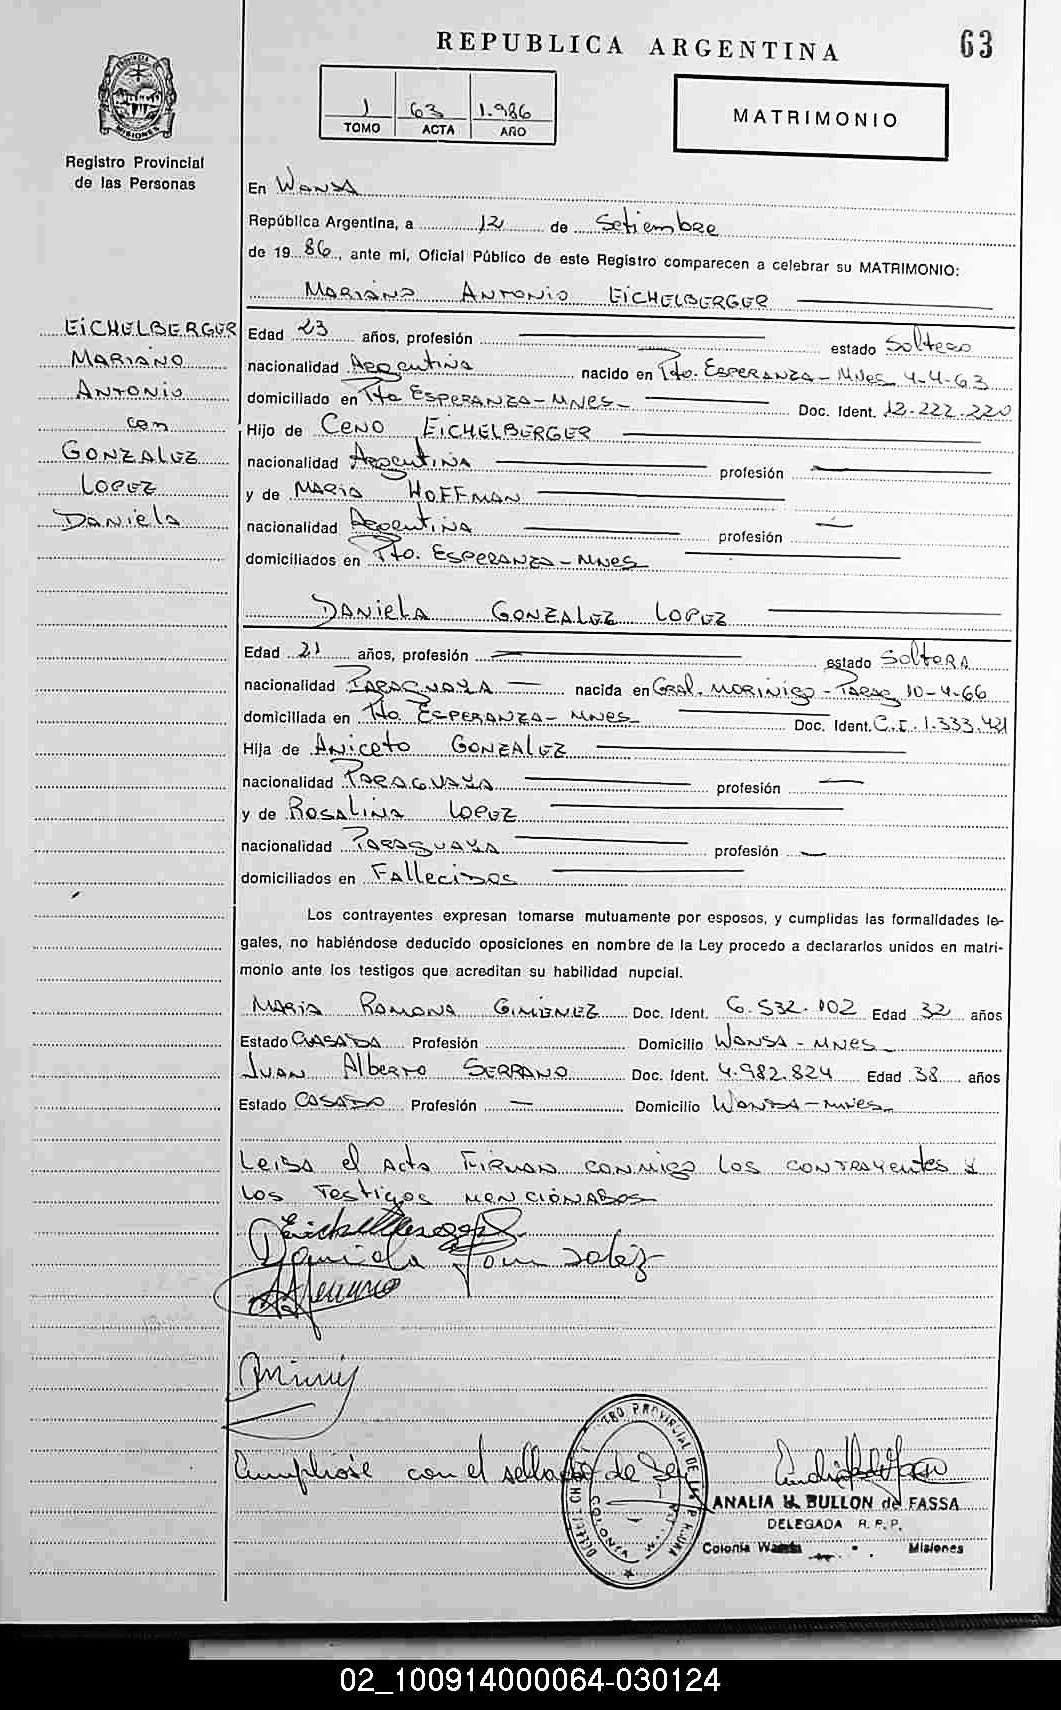 REPUBLICA ARGENTINA
63
1 63 1.986
TOMO ACTA AÑO
MATRIMONIO
PROVINCIA DE MISIONES
Registro Provincial
de las Personas
En WANDA
República Argentina, a 12 de Setiembre
de 19 86, ante mí, Oficial Público de este Registro comparecen a celebrar su MATRIMONIO:
MARIANO ANTONIO EICHELBERGER
EICHELBERGER
MARIANO
ANTONIO
con
GONZALEZ
LOPEZ
DANIELA
Edad 23 años, profesión estado Soltero
nacionalidad Argentina nacido en Pto. ESPERANZA - MNES 4-4-63
domiciliado en Pto ESPERANZA - MNES - Doc. Ident. 12.222.220
Hijo de CENO EICHELBERGER
nacionalidad Argentina profesión
y de MARIA HOFFMAN
nacionalidad Argentina profesión —
domiciliados en Pto. ESPERANZA - MNES
DANIELA GONZALEZ LOPEZ
Edad 21 años, profesión estado SOLTERA
nacionalidad PARAGUAYA — nacida en Gral. MORINIGO - PARAG 10-4-66
domiciliada en Pto. ESPERANZA - MNES Doc. Ident. C.I. 1.333.421
Hija de ANICETO GONZALEZ
nacionalidad PARAGUAYA profesión —
y de ROSALINA LOPEZ
nacionalidad PARAGUAYA profesión —
domiciliados en FALLECIDOS
Los contrayentes expresan tomarse mutuamente por esposos, y cumplidas las formalidades le-
gales, no habiéndose deducido oposiciones en nombre de la Ley procedo a declararlos unidos en matri-
monio ante los testigos que acreditan su habilidad nupcial.
MARIA RAMONA GIMENEZ Doc. Ident. 6.532.102 Edad 32 años
Estado CASADA Profesión Domicilio WANDA - MNES
JUAN ALBERTO SERRANO Doc. Ident. 4.982.824 Edad 38 años
Estado CASADO Profesión — Domicilio WANDA - MNES
LEIDA el ACTA FIRMAN CONMIGO LOS CONTRAYENTES y
LOS TESTIGOS MENCIONADOS
Daniela Gonzalez
Cumpliose con el sellado de Ley
ANALIA H. BULLON de FASSA
DELEGADA R. P. P.
Colonia Wanda Misiones
02_100914000064-030124